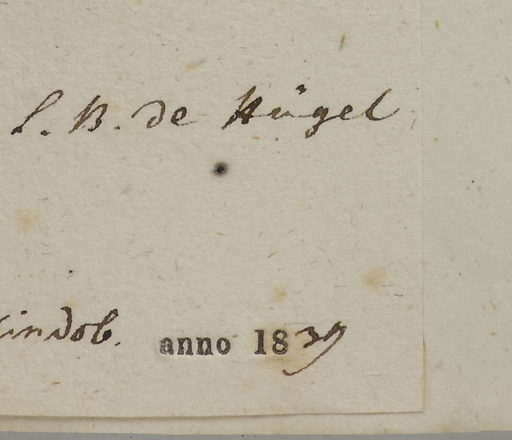 L. B. de Hügel
indob. anno 1839